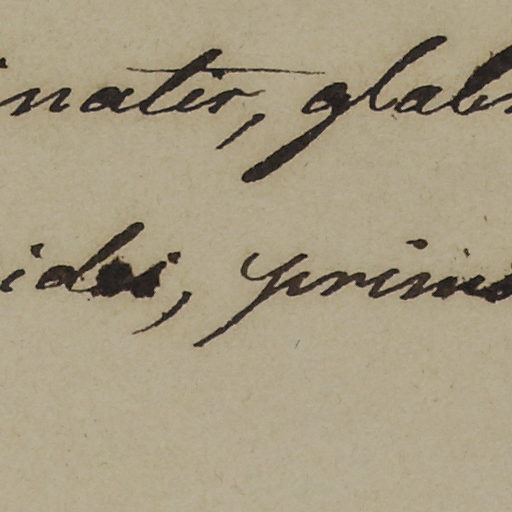 natis, glab
ides, primo